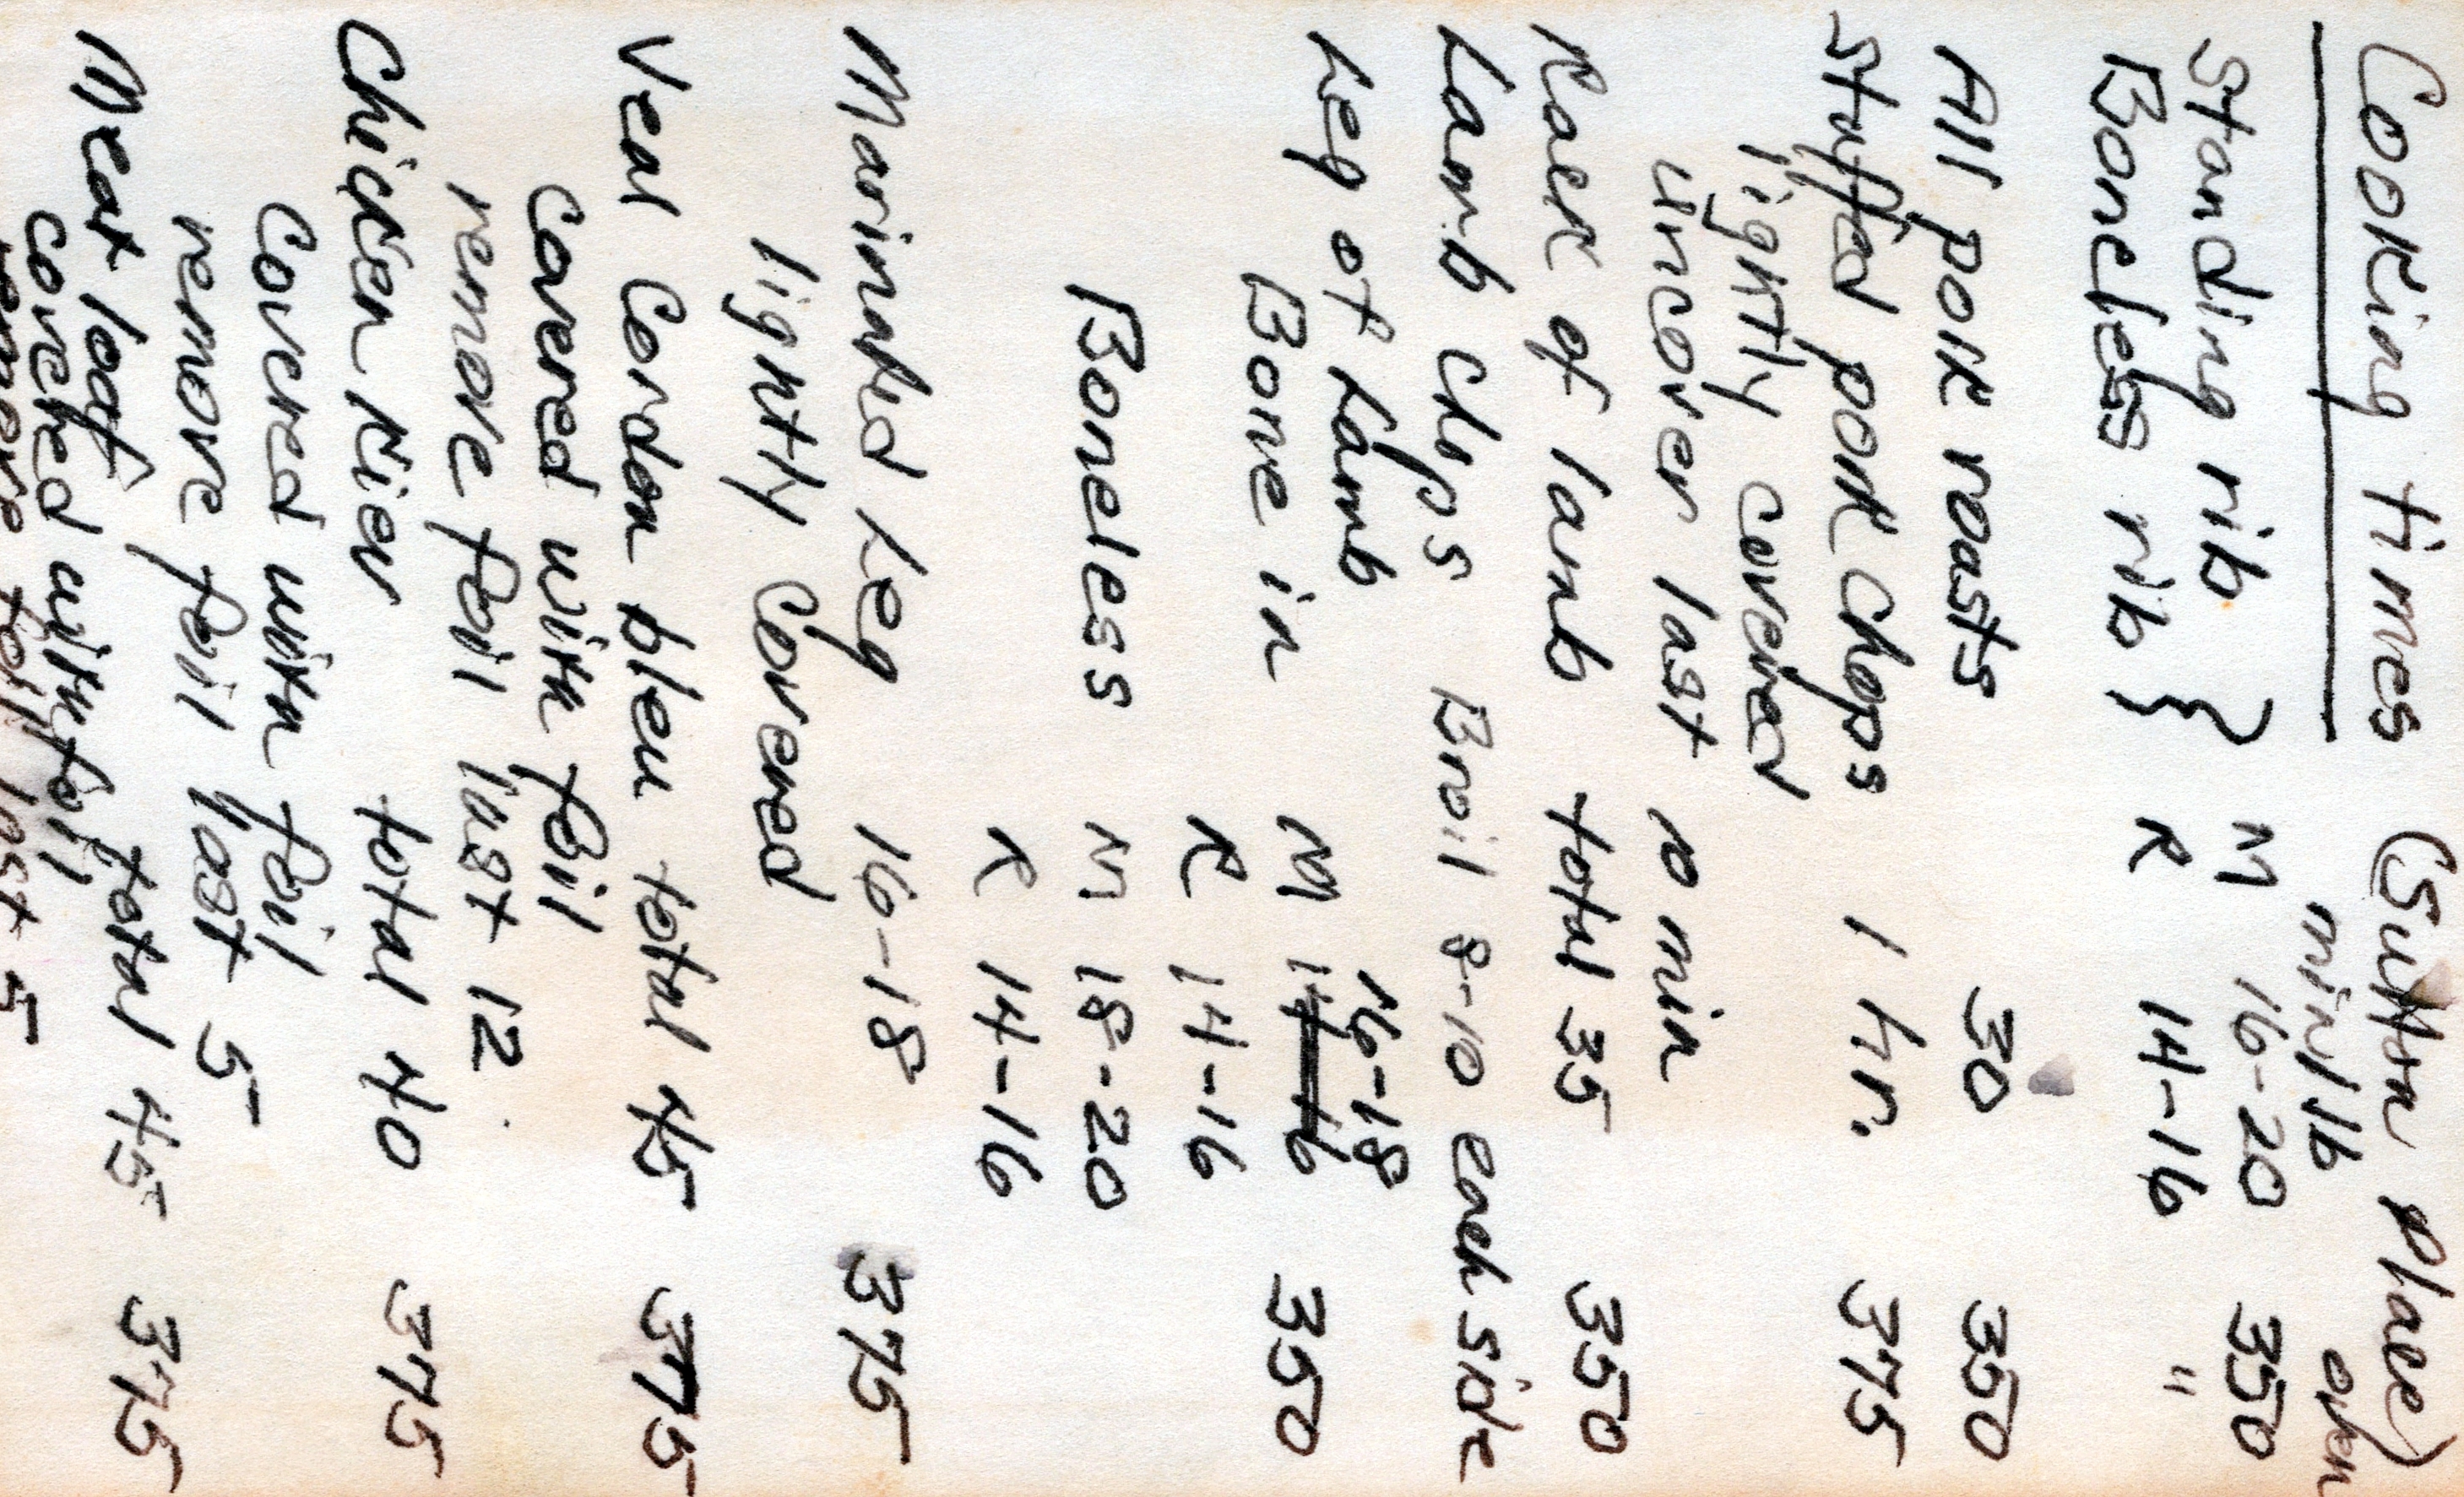 Cooking times (Sutton Place)
min/lb oven
Standing rib } M 16-20 350
Boneless rib } R 14-16 "
All pork roasts 30 350
Stuffed pork chops 1 hr. 375
lightly covered
uncover last 10 min
Rack of lamb total 35 350
Lamb chps Broil 8-10 each side
Leg of Lamb 16-18
Bone in M 14-16 350
R 14-16
Boneless M 18-20
R 14-16
Marinated Leg 16-18 375
lightly covered
Veal Cordon bleu total 45 375
covered with foil
remove foil last 12
Chicken Kiev total 40 375
Covered with foil
remove foil last 5
Meat loaf total 45 375
covered with foil
remove foil last 5